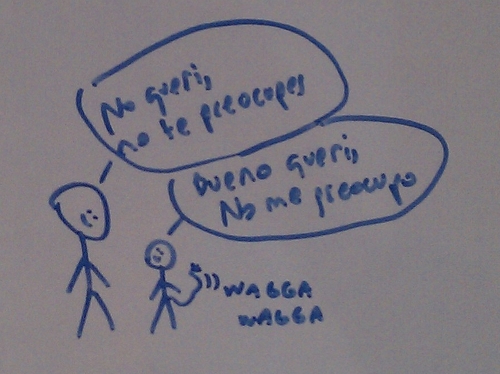 No queri,
no te preocupes
bueno queri,
No me preocupo
WAGGA
WAGGA